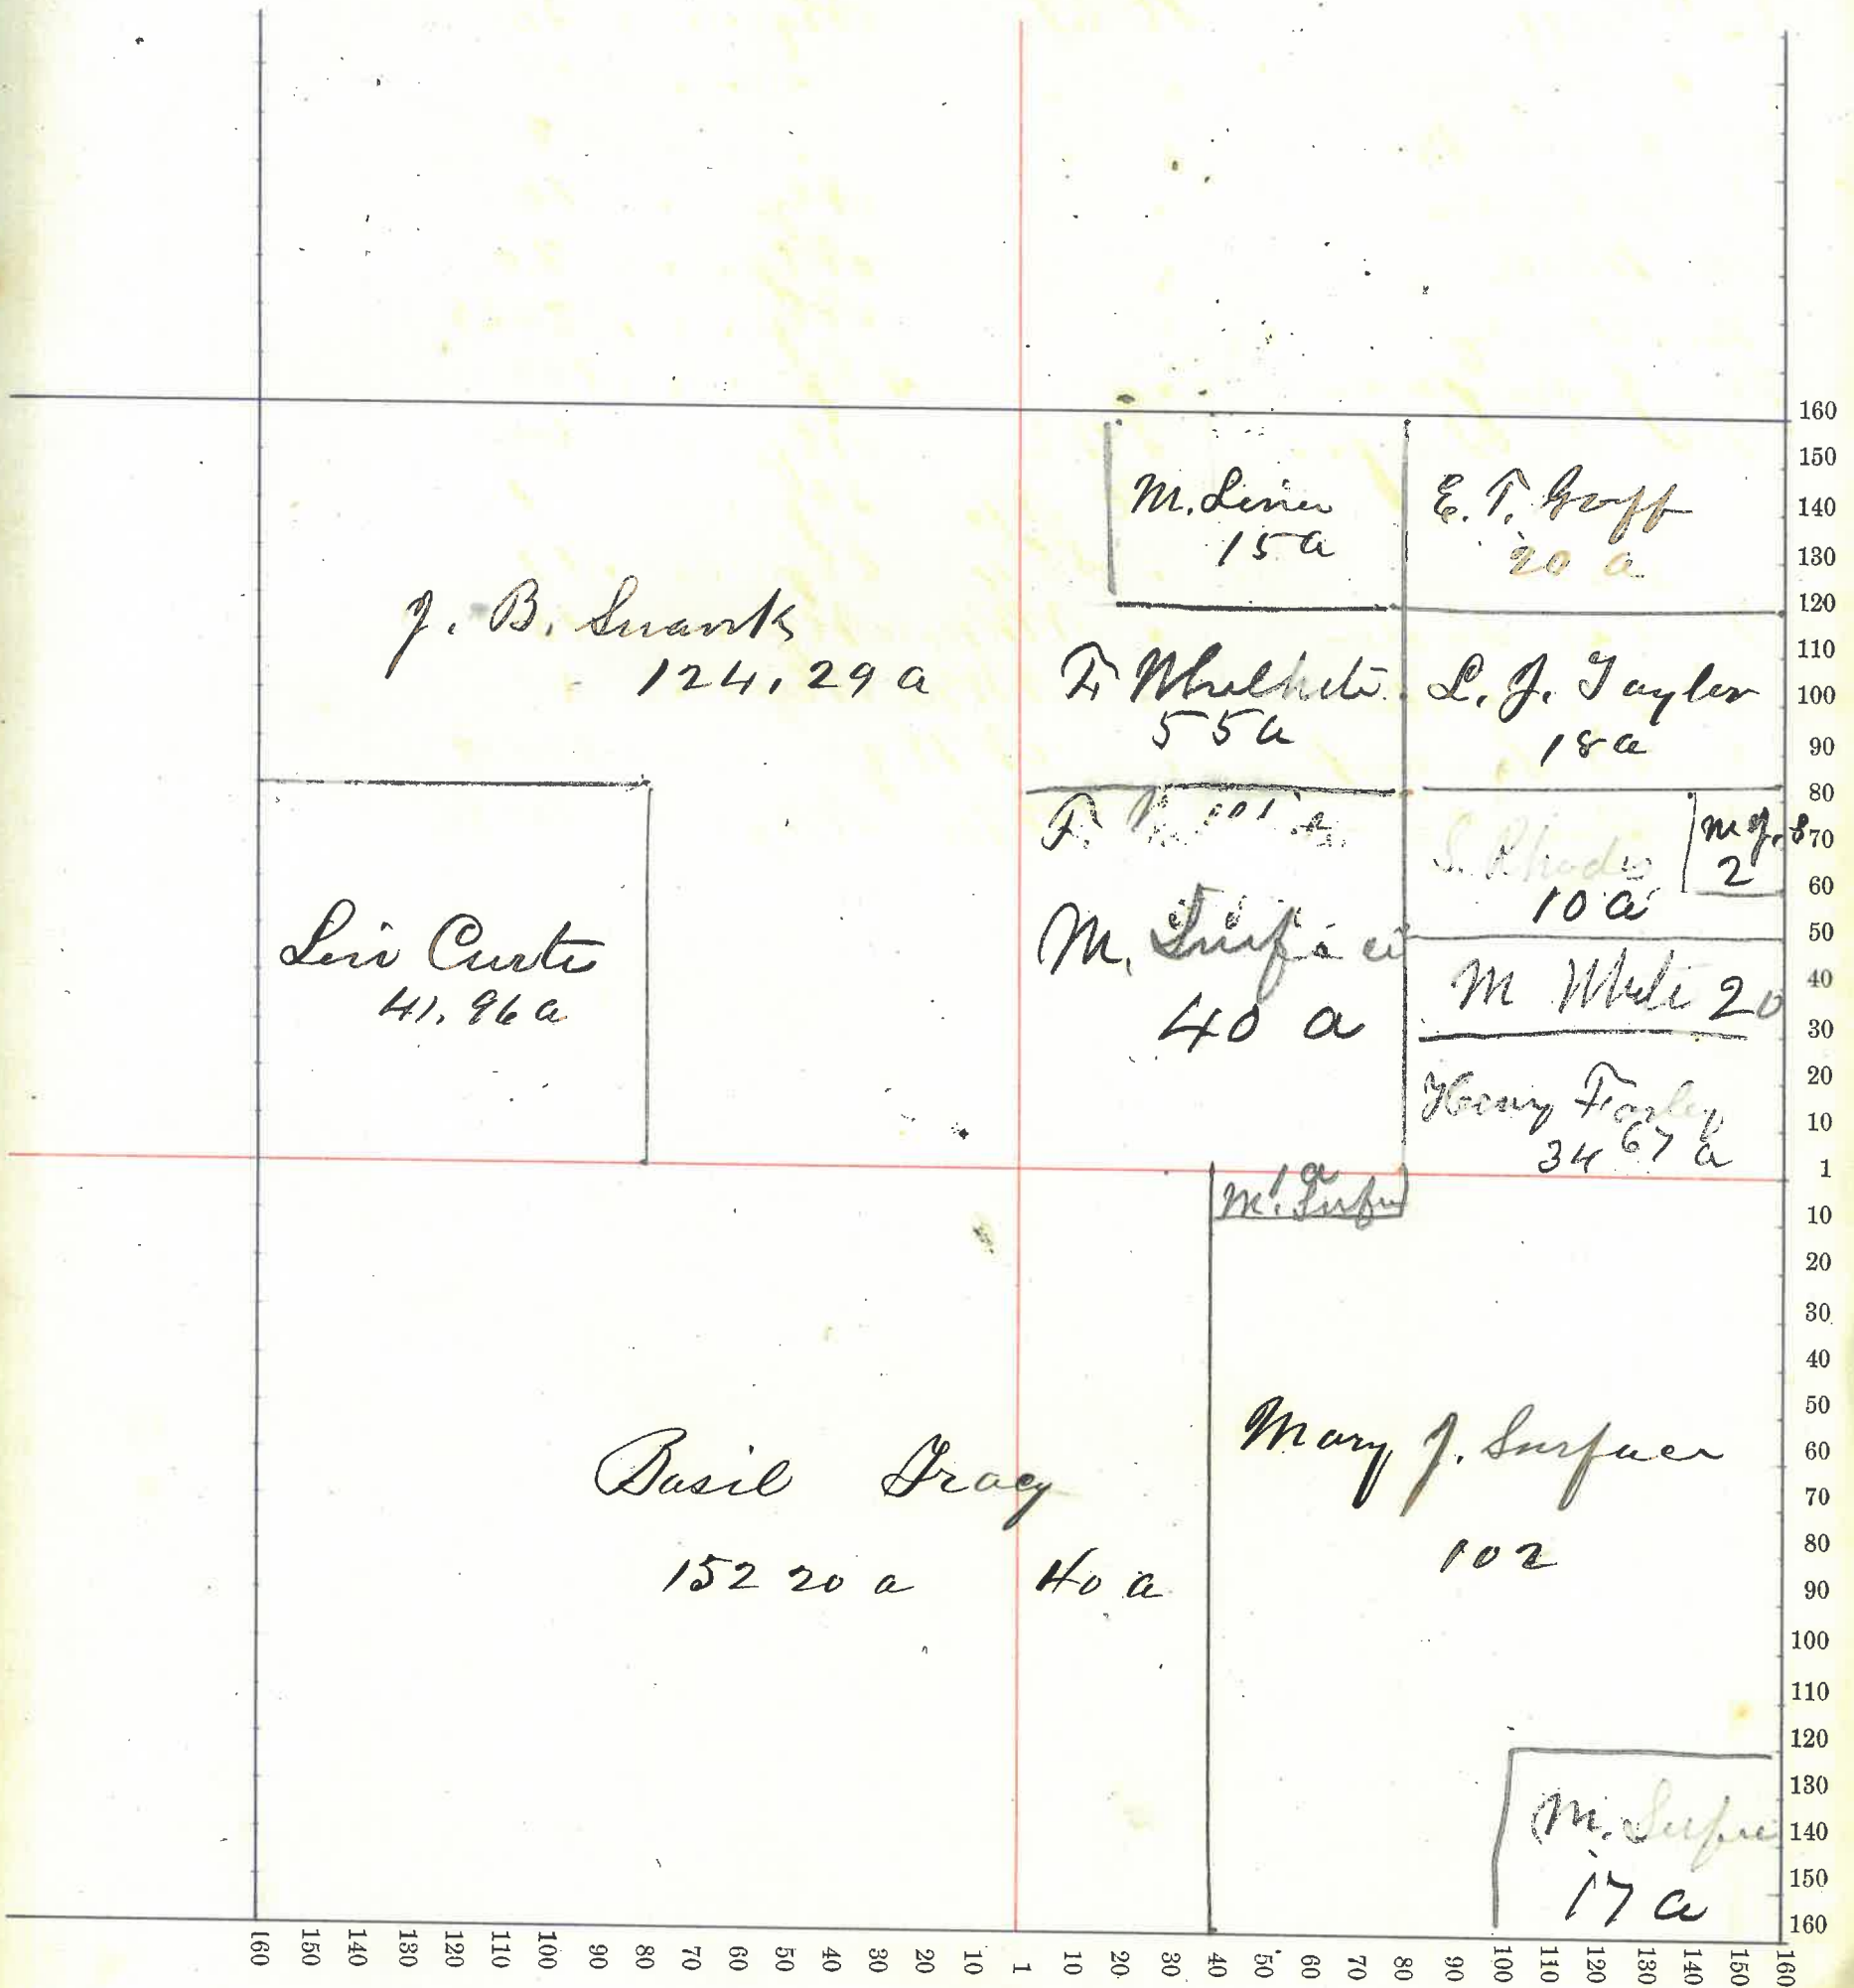 J. B. Swank
124.29 a
M. Liner
15 a
E. T. Goff
20 a
F.
55 a
L. J. Taylor
18 a
Levi Curtis
41.96 a
F.
M. Surface
40 a
S. Rhodes
10 a
M J. S
2
M White 20
Henry Farley
34 67 a
1 a
M. Surface
Basil Tracy
152 20 a 40 a
Mary J. Surface
102
M. Surface
17 a
160
150
140
130
120
110
100
90
80
70
60
50
40
30
20
10
1
10
20
30
40
50
60
70
80
90
100
110
120
130
140
150
160
160 150 140 130 120 110 100 90 80 70 60 50 40 30 20 10 1 10 20 30 40 50 60 70 80 90 100 110 120 130 140 150 160